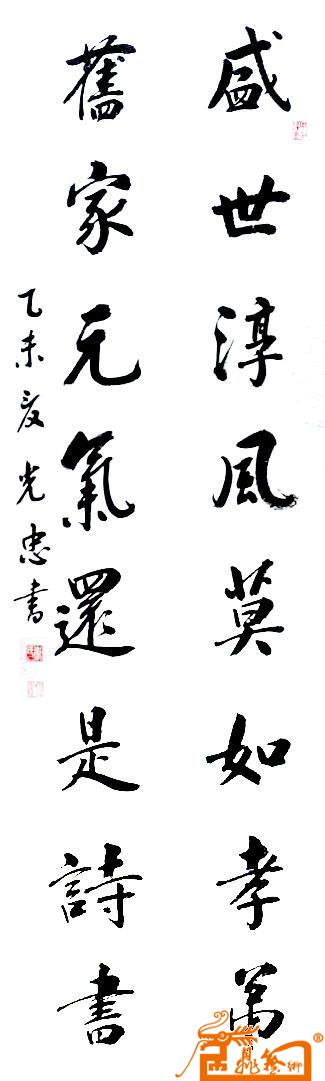 盛世淳風莫如孝弟
舊家元氣還是詩書
乙未夏光忠書